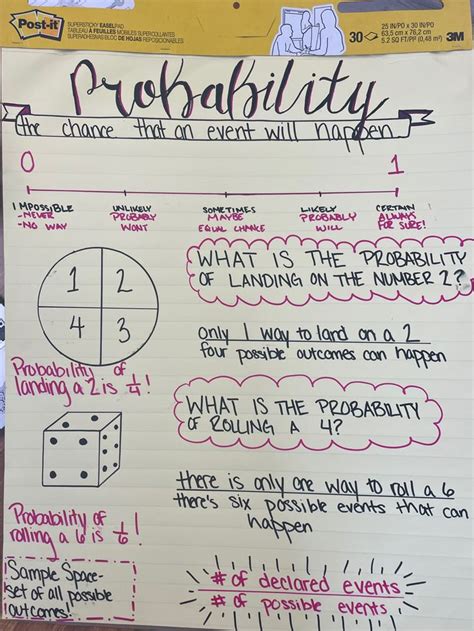 Post-it
SUPERSTICKY EASELPAD
TABLEAU À FEUILLES MOBILES SUPERCOLLANTES
SUPERADHESIVAS BLOC DE HOJAS REPOSICIONABLES
30
25 IN/PO x 30 IN/PO
63,5 cm x 76,2 cm
5.2 SQ FT/PP (0,48 m²)
3M
Probability
the chance that an event will happen
0
1
IMPOSSIBLE
-NEVER
-NO WAY
UNLIKELY
PROBABLY
WONT
SOMETIMES
MAYBE
EQUAL CHANCE
LIKELY
PROBABLY
WILL
CERTAIN
ALWAYS
FOR SURE!
1 2
4 3
WHAT IS THE PROBABILITY
OF LANDING ON THE NUMBER 2?
only 1 way to land on a 2
four possible outcomes can happen
Probability of
landing a 2 is 1/4!
WHAT IS THE PROBABILITY
OF ROLLING A 4?
there is only one way to roll a 6
there's six possible events that can
happen
Probability of
rolling a 6 is 1/6!
Sample Space-
set of all possible
outcomes!
# of declared events
# of possible events